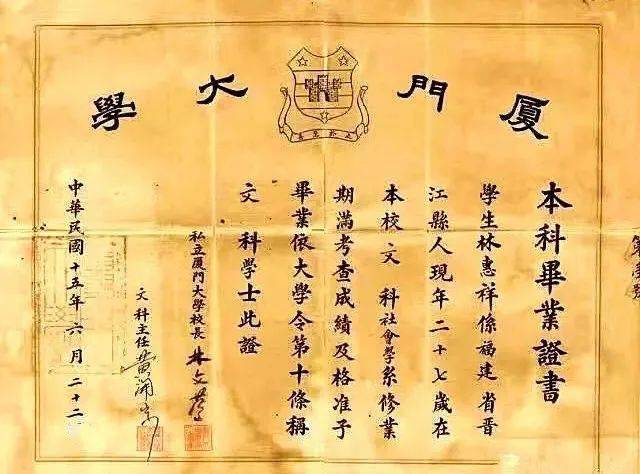 廈門大學
本科畢業證書
學生林惠祥係福建省晉
江縣人現年二十七歲在
本校文科社會學系修業
期滿考查成績及格准予
畢業依大學令第十條稱
文科學士此證
私立廈門大學校長 林文慶
文科主任 黃開宗
中華民國十五年六月二十二